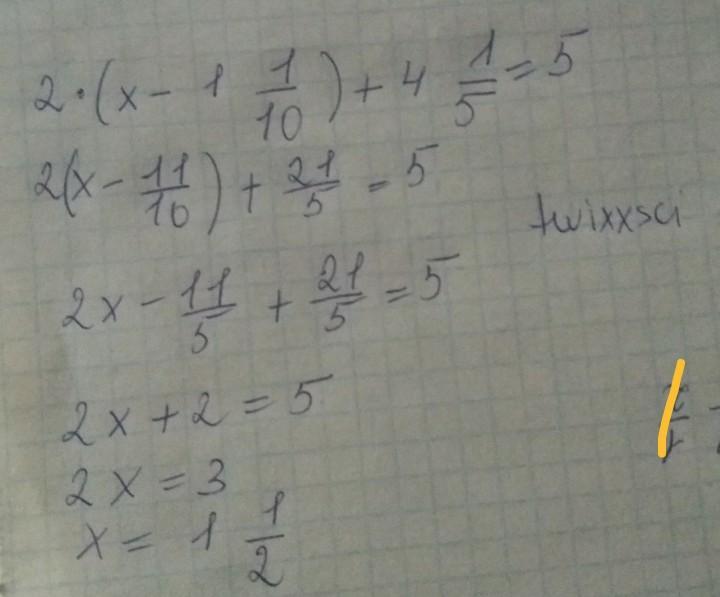 2·(x - 1 1/10) + 4 1/5 = 5
2(x - 11/10) + 21/5 = 5
twixxsci
2x - 11/5 + 21/5 = 5
2x + 2 = 5
2x = 3
x = 1 1/2